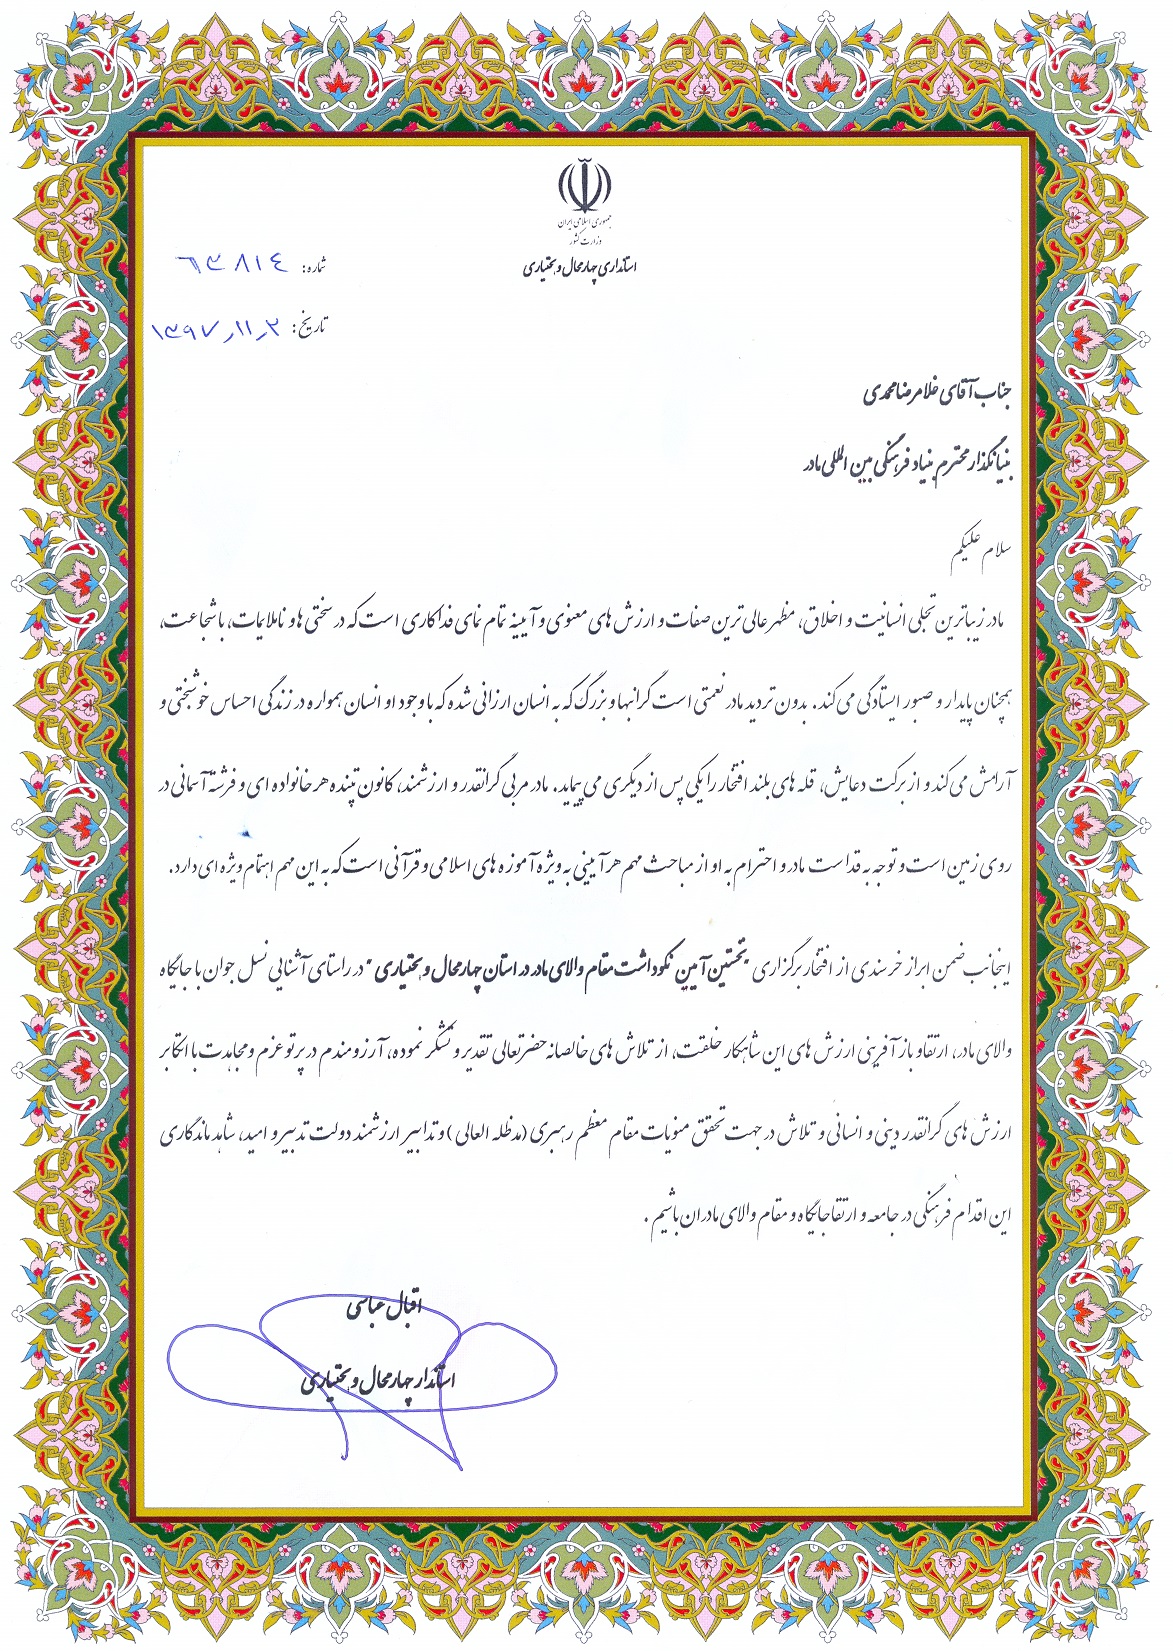 جمهوری اسلامی ایران
وزارت کشور
استانداری چهارمحال و بختیاری
شماره: ۶۳۸۱۴
تاریخ: ۱۳۹۷٫۱۱٫۲
جناب آقای غلامرضا محمدی
بنیانگذار محترم بنیاد فرهنگی بین المللی مادر
سلام علیکم
مادر زیباترین تجلی انسانیت و اخلاق، مظهر عالی ترین صفات و ارزش های معنوی و آیینه تمام نمای فداکاری است که در سختی ها و ناملایمات، با شجاعت،
همچنان پایدار و صبور ایستادگی می کند. بدون تردید مادر نعمتی است گرانبها و بزرگ که به انسان ارزانی شده که با وجود او انسان همواره در زندگی احساس خوشبختی و
آرامش می کند و از برکت دعایش، قله های بلند افتخار را یکی پس از دیگری می پیماید. مادر مربی گرانقدر و ارزشمند، کانون تپنده هر خانواده ای و فرشته آسمانی در
روی زمین است و توجه به قداست مادر و احترام به او از مباحث مهم هر آیینی به ویژه آموزه های اسلامی و قرآنی است که به این مهم اهتمام ویژه ای دارد.
اینجانب ضمن ابراز خرسندی از افتخار برگزاری "نخستین آیین نکوداشت مقام والای مادر در استان چهارمحال و بختیاری" در راستای آشنایی نسل جوان با جایگاه
والای مادر، ارتقا و باز آفرینی ارزش های این شاهکار خلقت، از تلاش های خالصانه حضرتعالی تقدیر و تشکر نموده، آرزومندم در پرتو عزم و مجاهدت با اتکا بر
ارزش های گرانقدر دینی و انسانی و تلاش در جهت تحقق منویات مقام معظم رهبری (مدظله العالی) و تدابیر ارزشمند دولت تدبیر و امید، شاهد ماندگاری
این اقدام فرهنگی در جامعه و ارتقا جایگاه و مقام والای مادران باشیم.
اقبال عباسی
استاندار چهارمحال و بختیاری